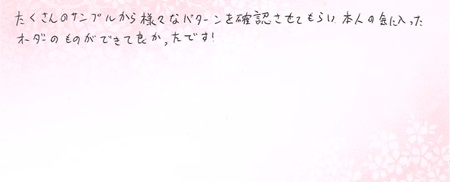 たくさんのサンプルから様々なパターンを確認させてもらい本人の気に入った
オーダーのものができて良かったです!